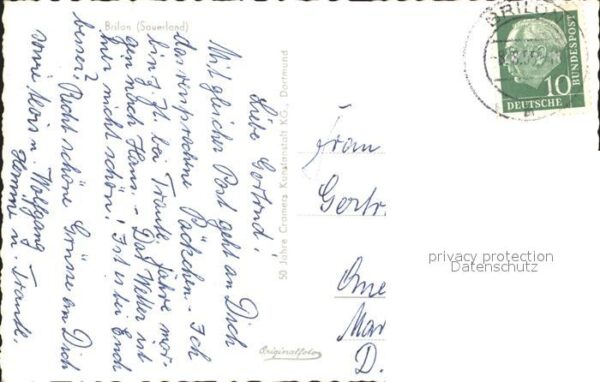 Brilon (Sauerland)
Liebe Gertrud!
Mit gleicher Post geht an Dich
das versprochene Päckchen. - Ich
bin z. Zt. bei Traute, fahre mor-
gen nach Haus. - Das Wetter ist
hier nicht schön! Ist es bei Euch
besser? Recht schöne Grüsse an Dich
sowie u. Wolfgang
u. Traute.
50 Jahre Cramers Kunstanstalt KG., Dortmund
Originalfoto
BRILON
10
DEUTSCHE
BUNDESPOST
Frau
Gertr.
Mar
D.
privacy protection
Datenschutz